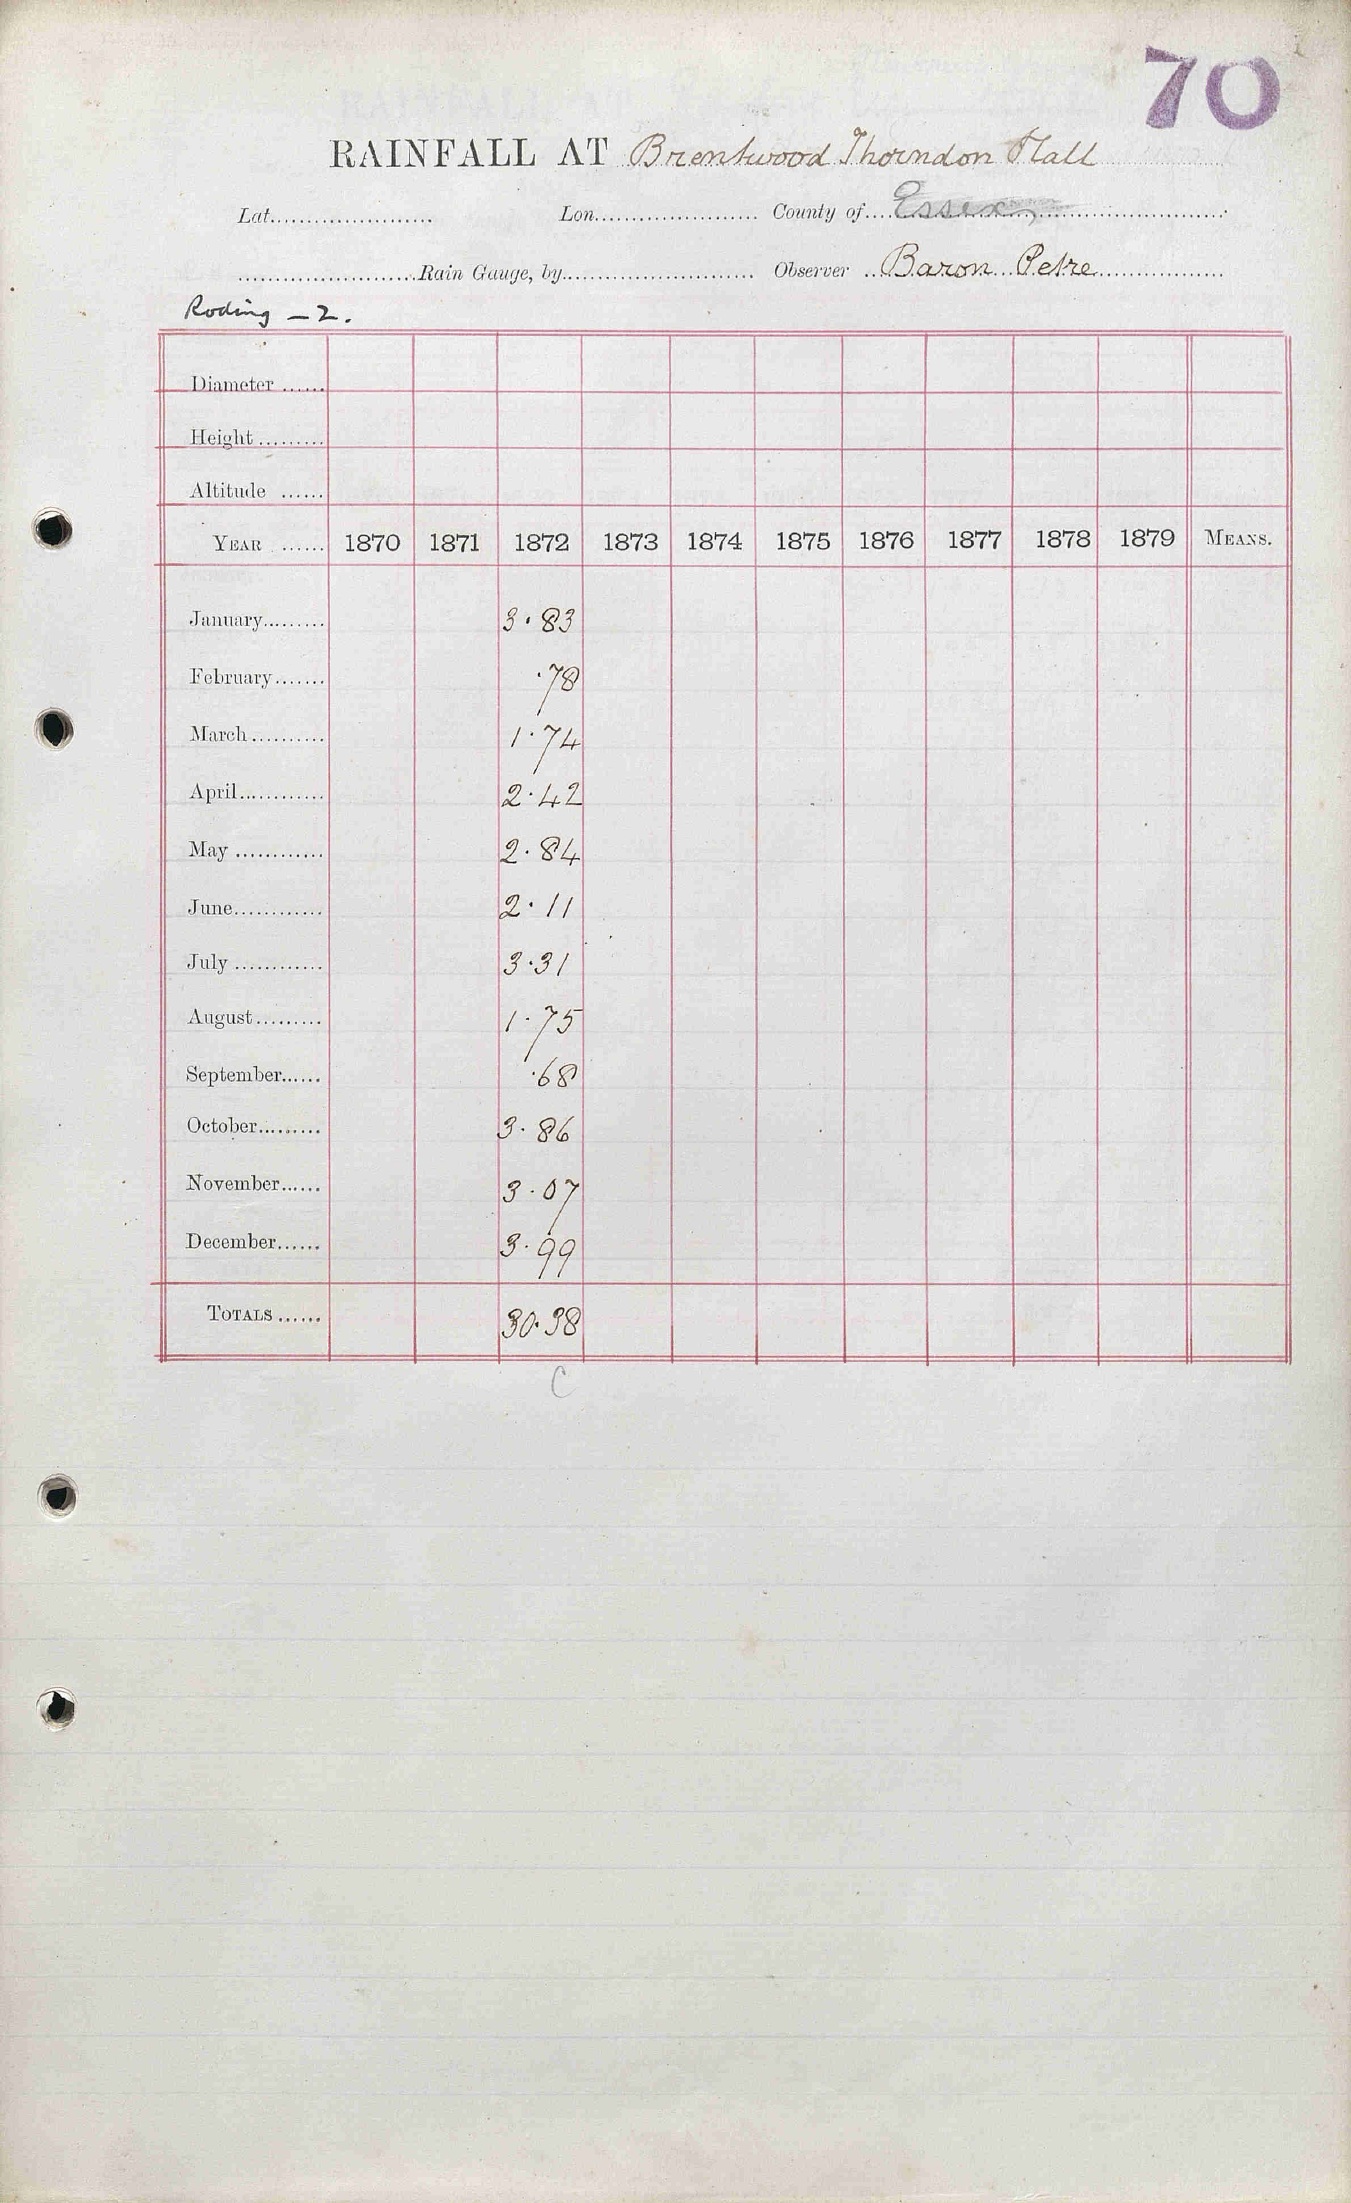 70
RAINFALL AT Brentwood Thorndon Hall
Lat...................... Lon...................... County of....Essex......................
........................Rain Gauge, by.......................... Observer ..Baron Petre..................
Roding – 2.
Diameter ......
Height .........
Altitude ......
YEAR ...... 1870 1871 1872 1873 1874 1875 1876 1877 1878 1879 MEANS.
January......... 3.83
February....... .78
March.......... 1.74
April............ 2.42
May ............ 2.84
June............ 2.11
July ............ 3.31
August......... 1.75
September...... .68
October......... 3.86
November...... 3.07
December...... 3.99
TOTALS ...... 30.38
C